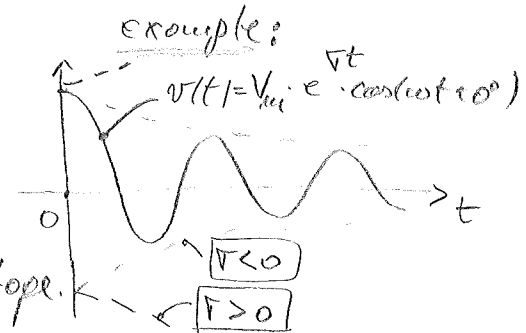 example:
v(t)=Vₘ·e^σt·cos(ωt+0°)
0
t
σ<0
ope.
σ>0